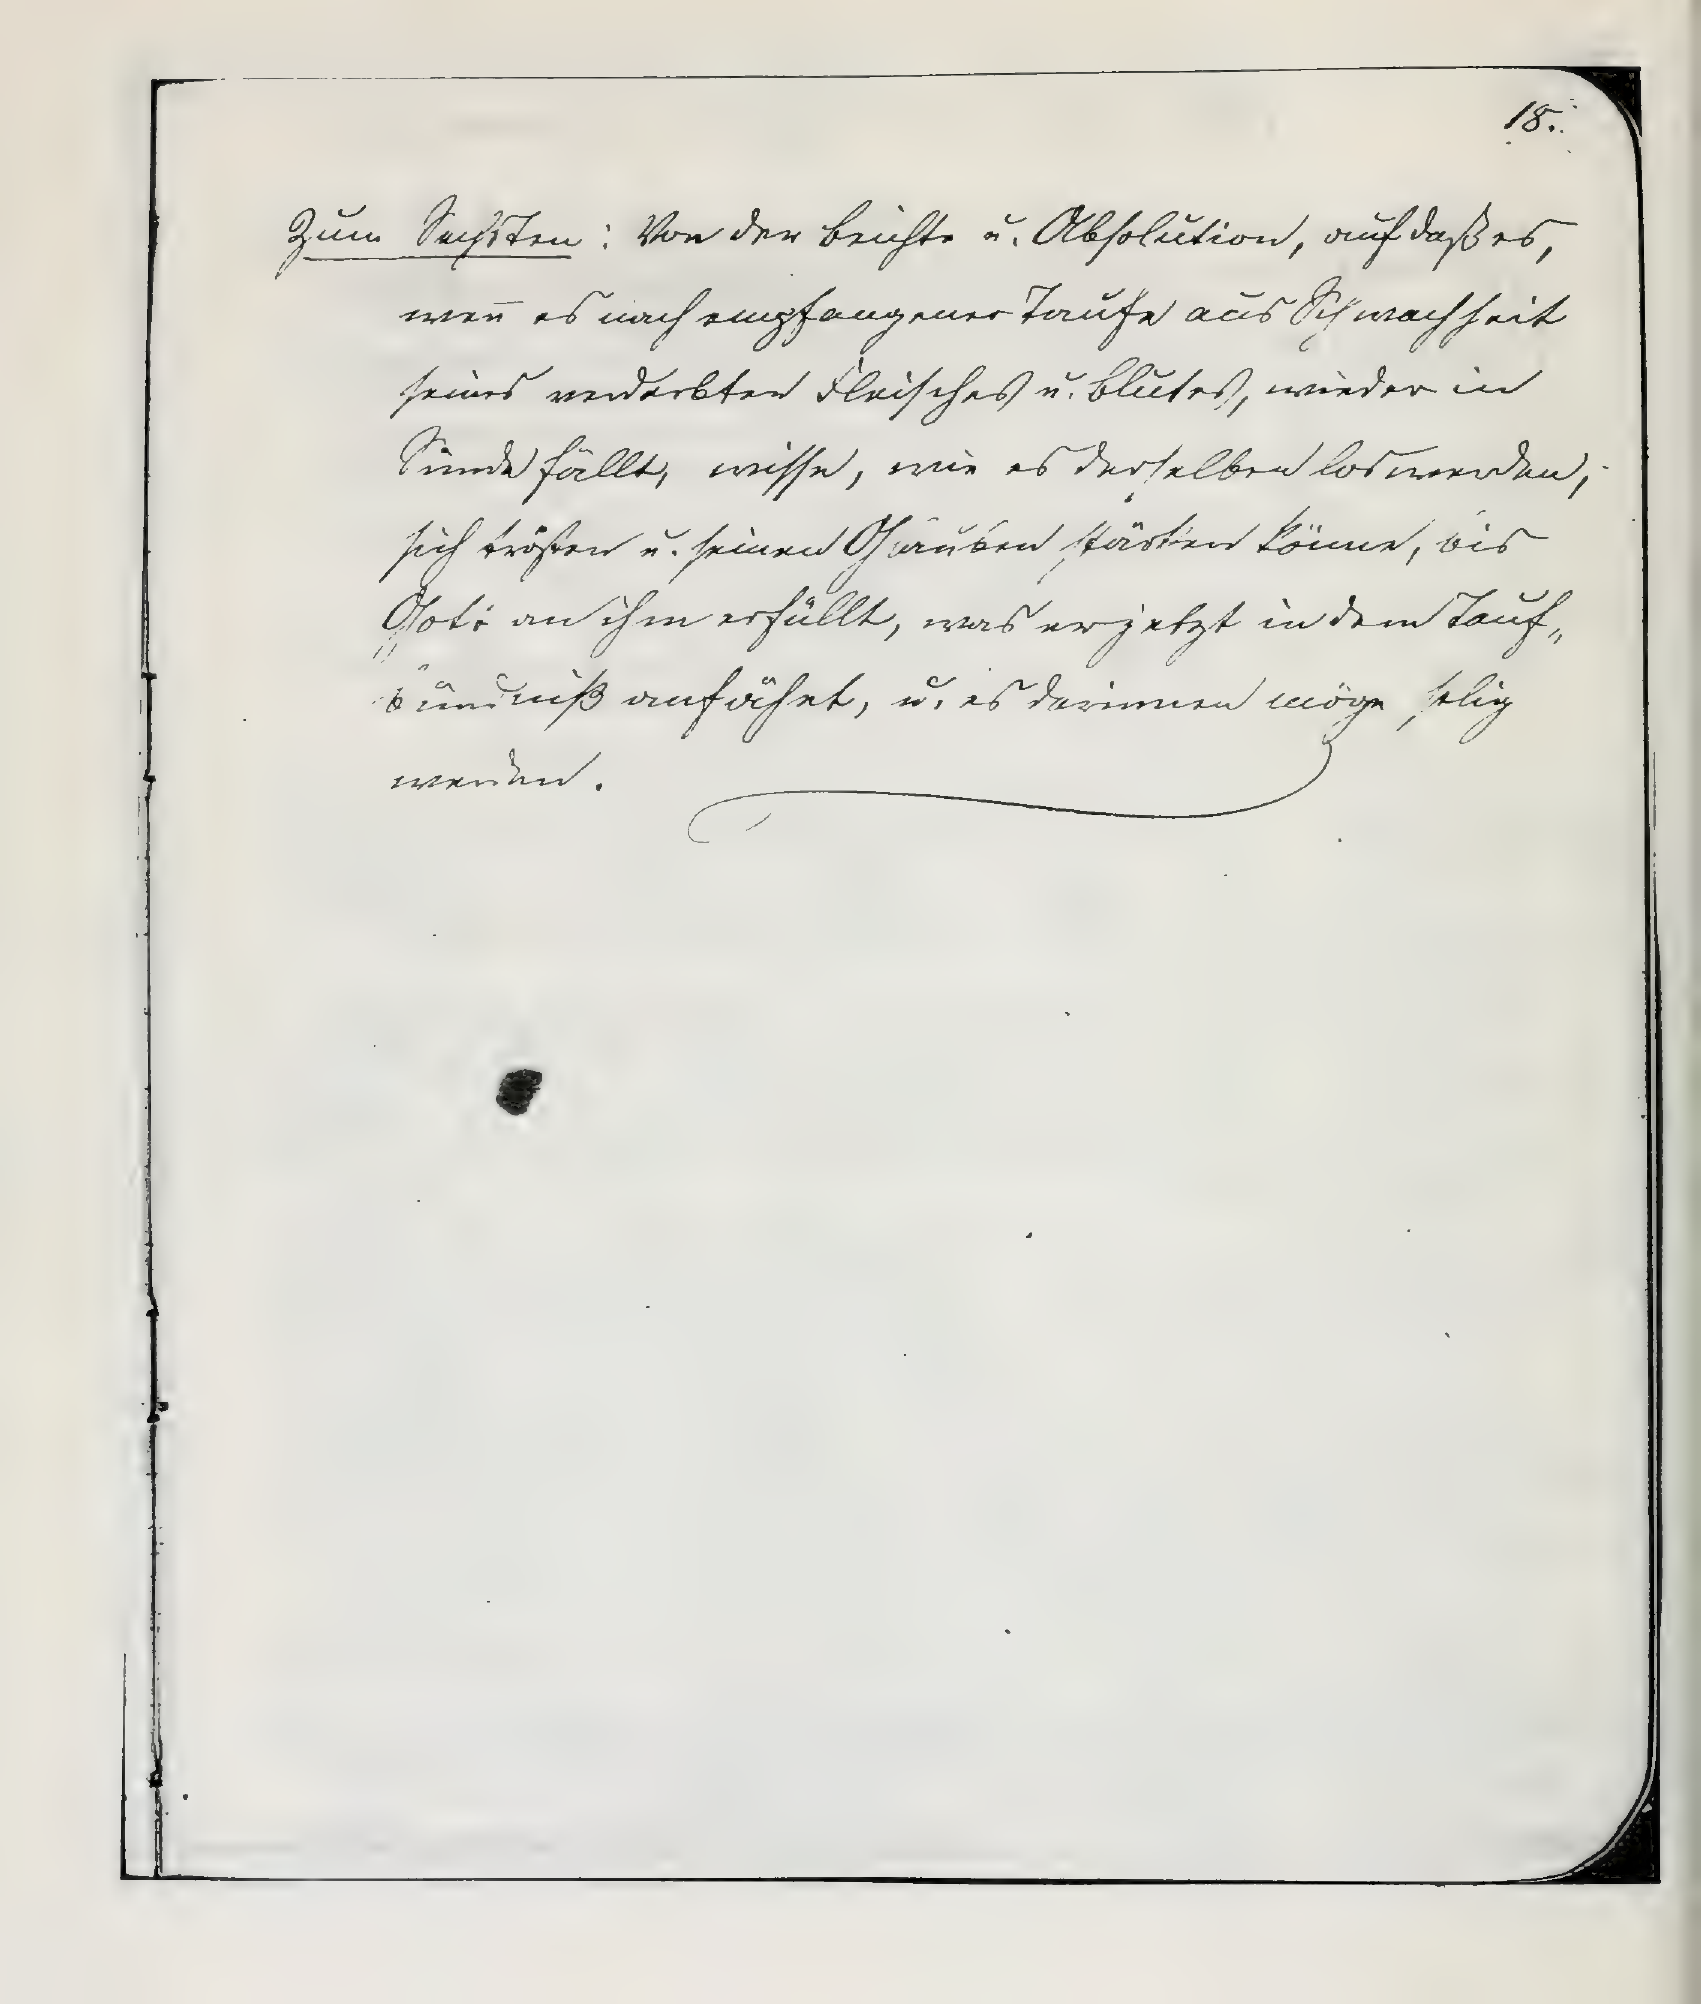 18.
Zum Sechsten: Von der Beichte u. Absolution, auf daß es,
wen̄ es nach empfangener Taufe aus Schwachheit
seines verderbten Fleisches u. Blutes, wieder in
Sünde fällt, wisse, wie es derselben los werden,
sich trösten u. seinen Glauben stärken könne, bis
Gott an ihm erfüllt, was er jetzt in dem Tauf„
bündniß anfähet, u. es darinnen möge selig
werden.